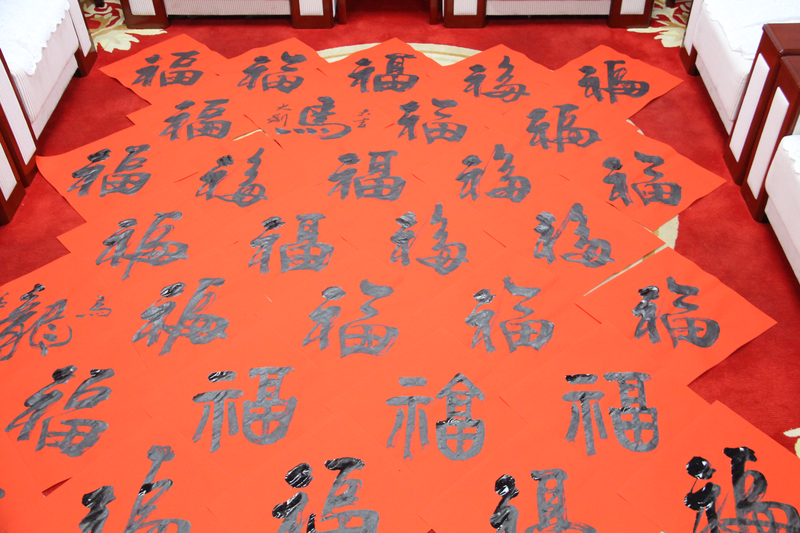 福 福 福 福 福
福 大利 馬 大吉 福 福
福 福 福 福 福
福 福 福 福
龍 馬 福 福 福 福
福 福 福 福
福 福 福 福